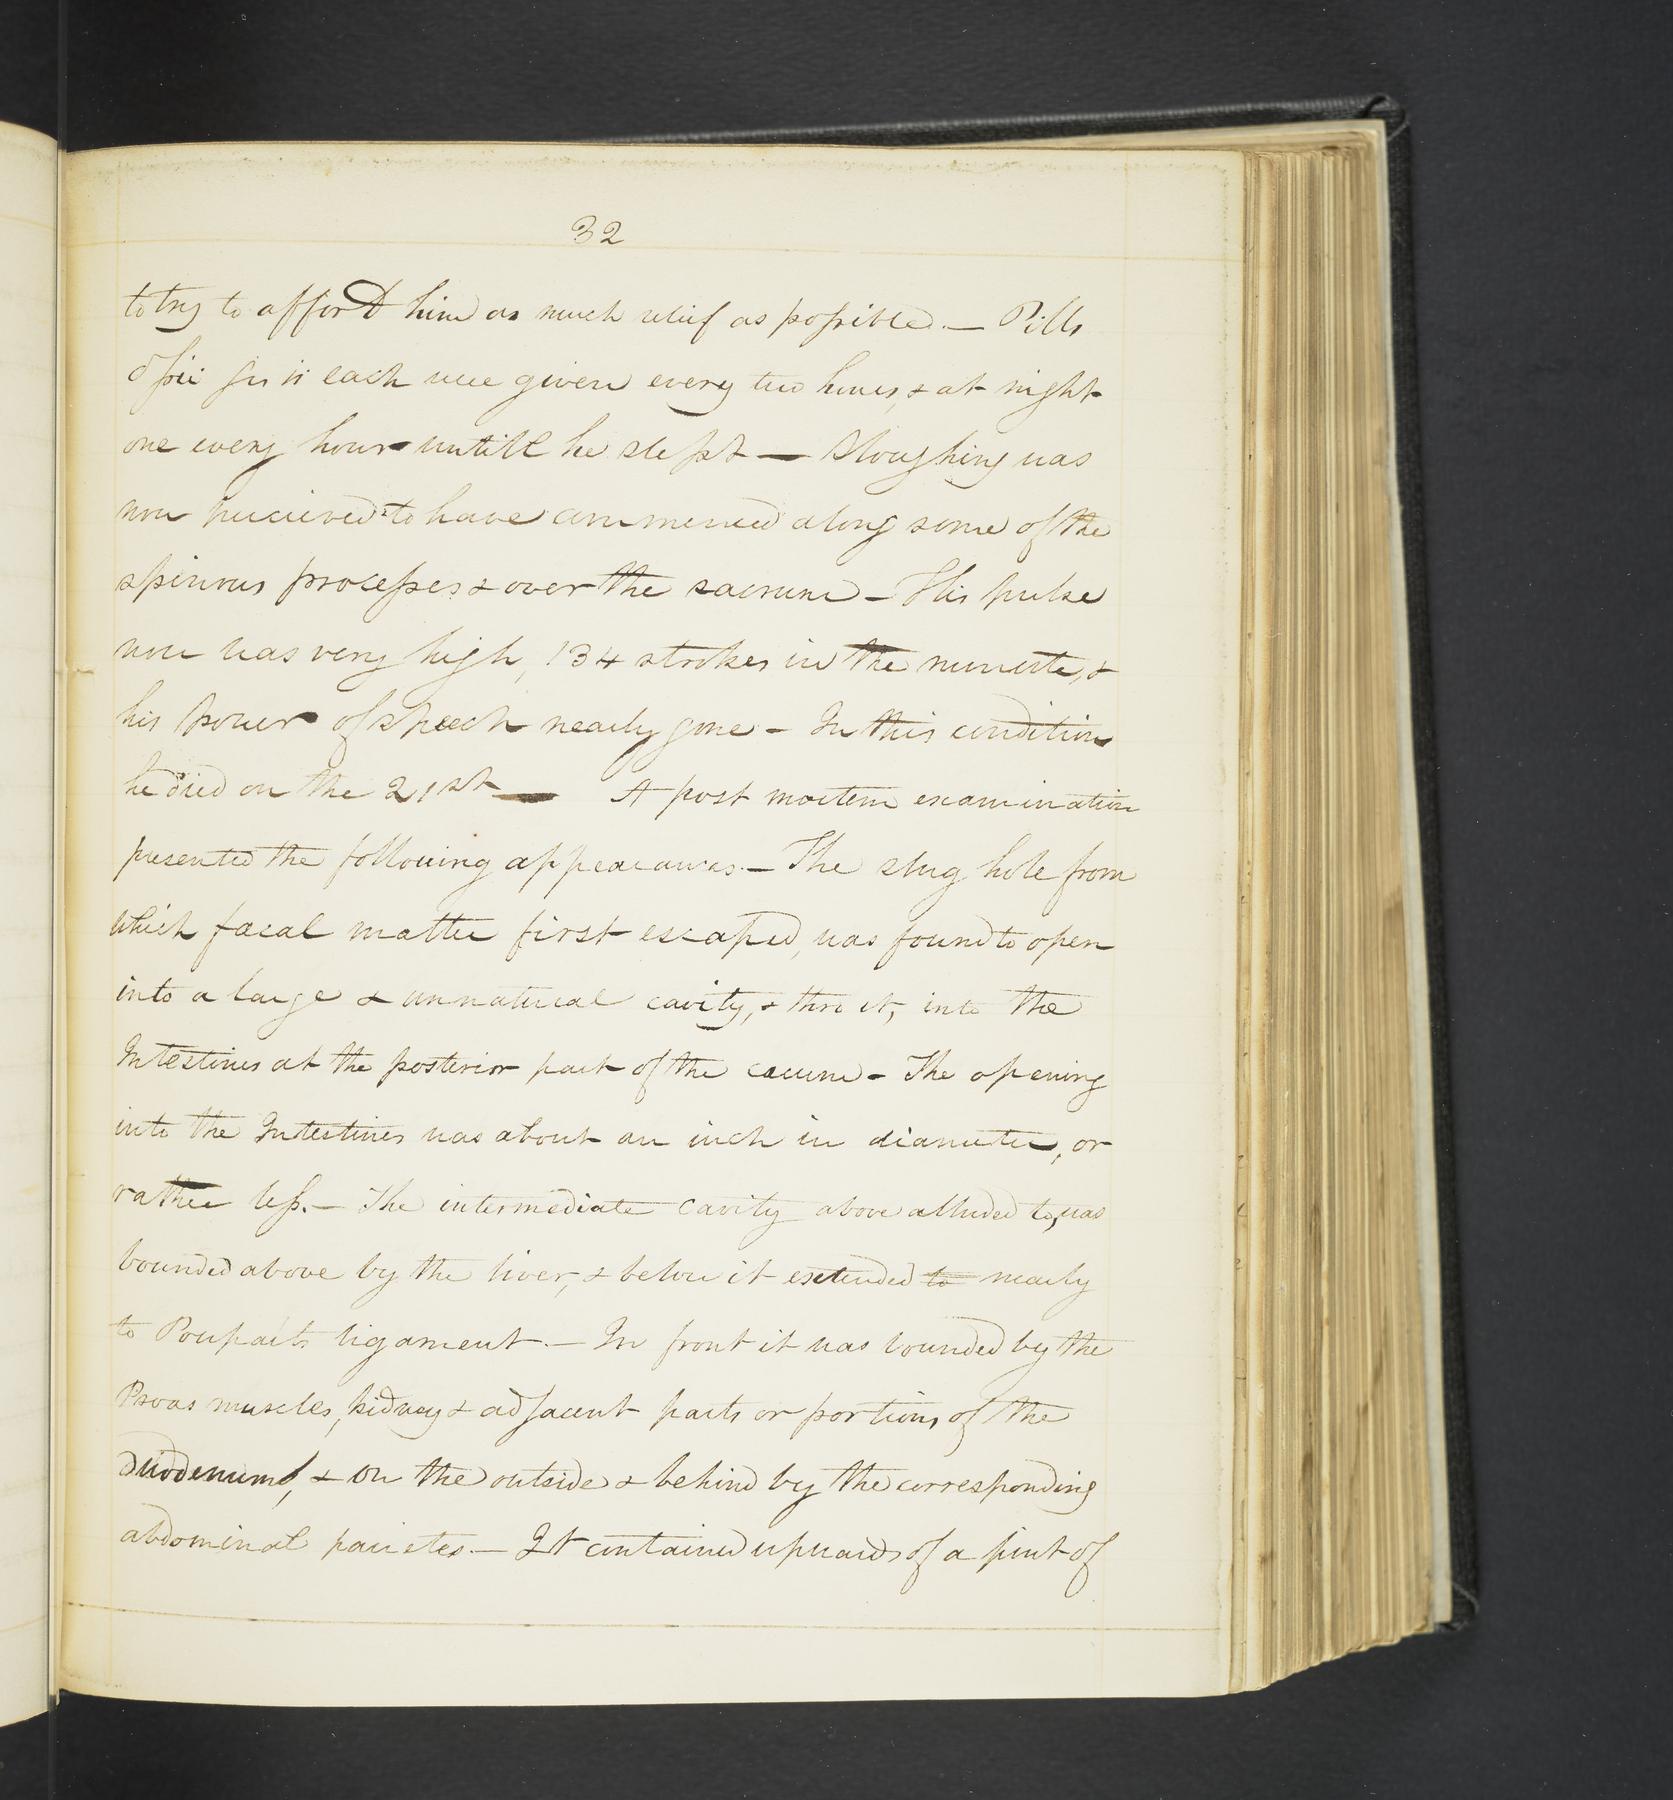 32
to try to afford him as much relief as possible. — Pills
Opii grs ii each were given every two hours, & at night
one every hour untill he slept — Sloughing was
now percieved to have commenced along some of the
spinous processes & over the sacrum — His pulse
now was very high, 134 strokes in the minute, &
his power of speech nearly gone — In this condition
he died on the 21st — A post mortem examination
presented the following appearances. — The slug hole from
which facal matter first escaped, was found to open
into a large & unnatural cavity, & thro it, into the
Intestines at the posterior part of the cæcum — The opening
into the Intestines was about an inch in diameter, or
rather less. — The intermediate cavity above alluded to, was
bounded above by the liver, & below it extended to nearly
to Pouparts ligament. — In front it was bounded by the
Psoas muscles, kidney & adjacent parts or portions of the
duodenum, & on the outside & behind by the corresponding
abdominal parietes. — It contained upwards of a pint of